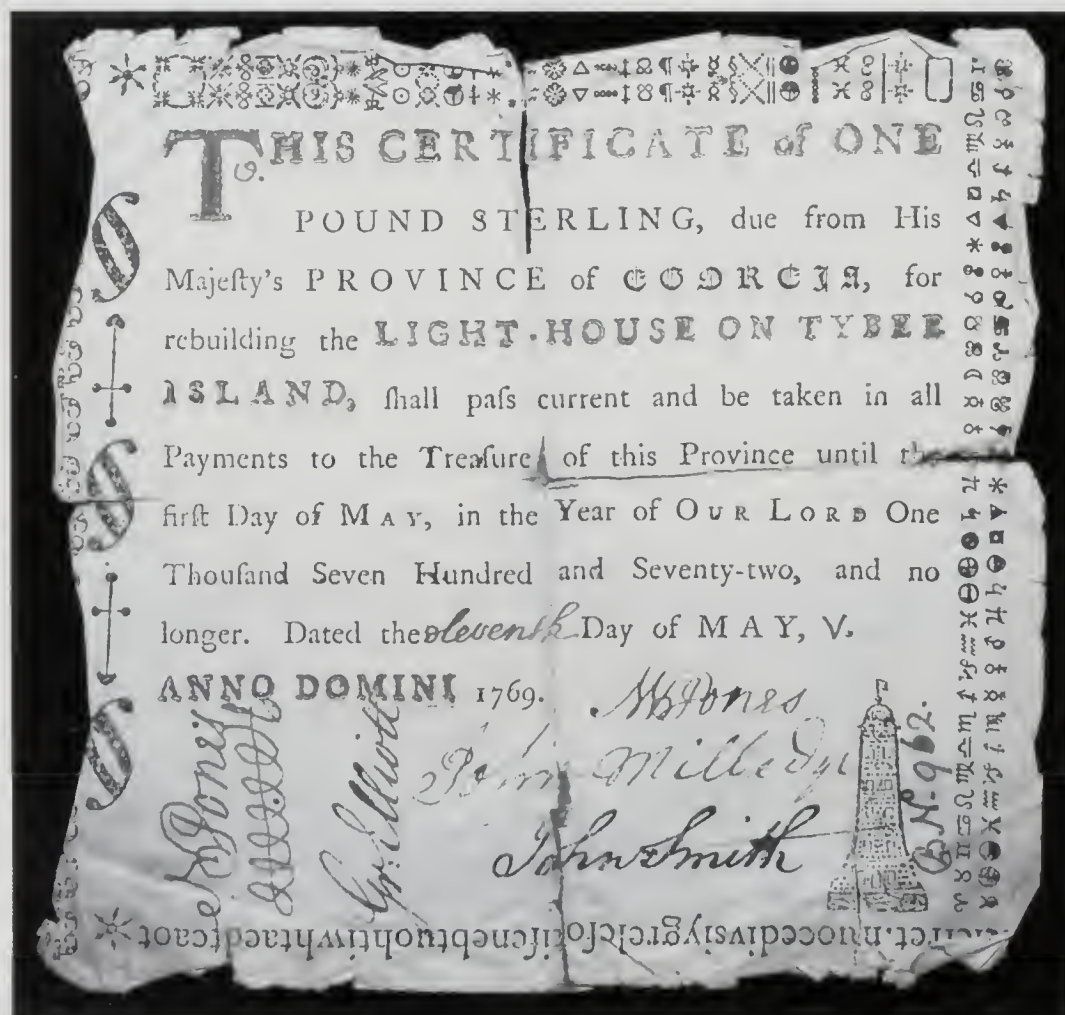 THIS CERTIFICATE of ONE
POUND STERLING, due from His
Majeſty's PROVINCE of GEORGIA, for
rebuilding the LIGHT-HOUSE ON TYBEE
ISLAND, ſhall paſs current and be taken in all
Payments to the Treaſure of this Province until the
firſt Day of MAY, in the Year of OUR LORD One
Thouſand Seven Hundred and Seventy-two, and no
longer. Dated the eleventh Day of MAY, V.
ANNO DOMINI 1769.
Jones
John
John Smith
N. Jones
Gr. Elliott
B. No. 962.